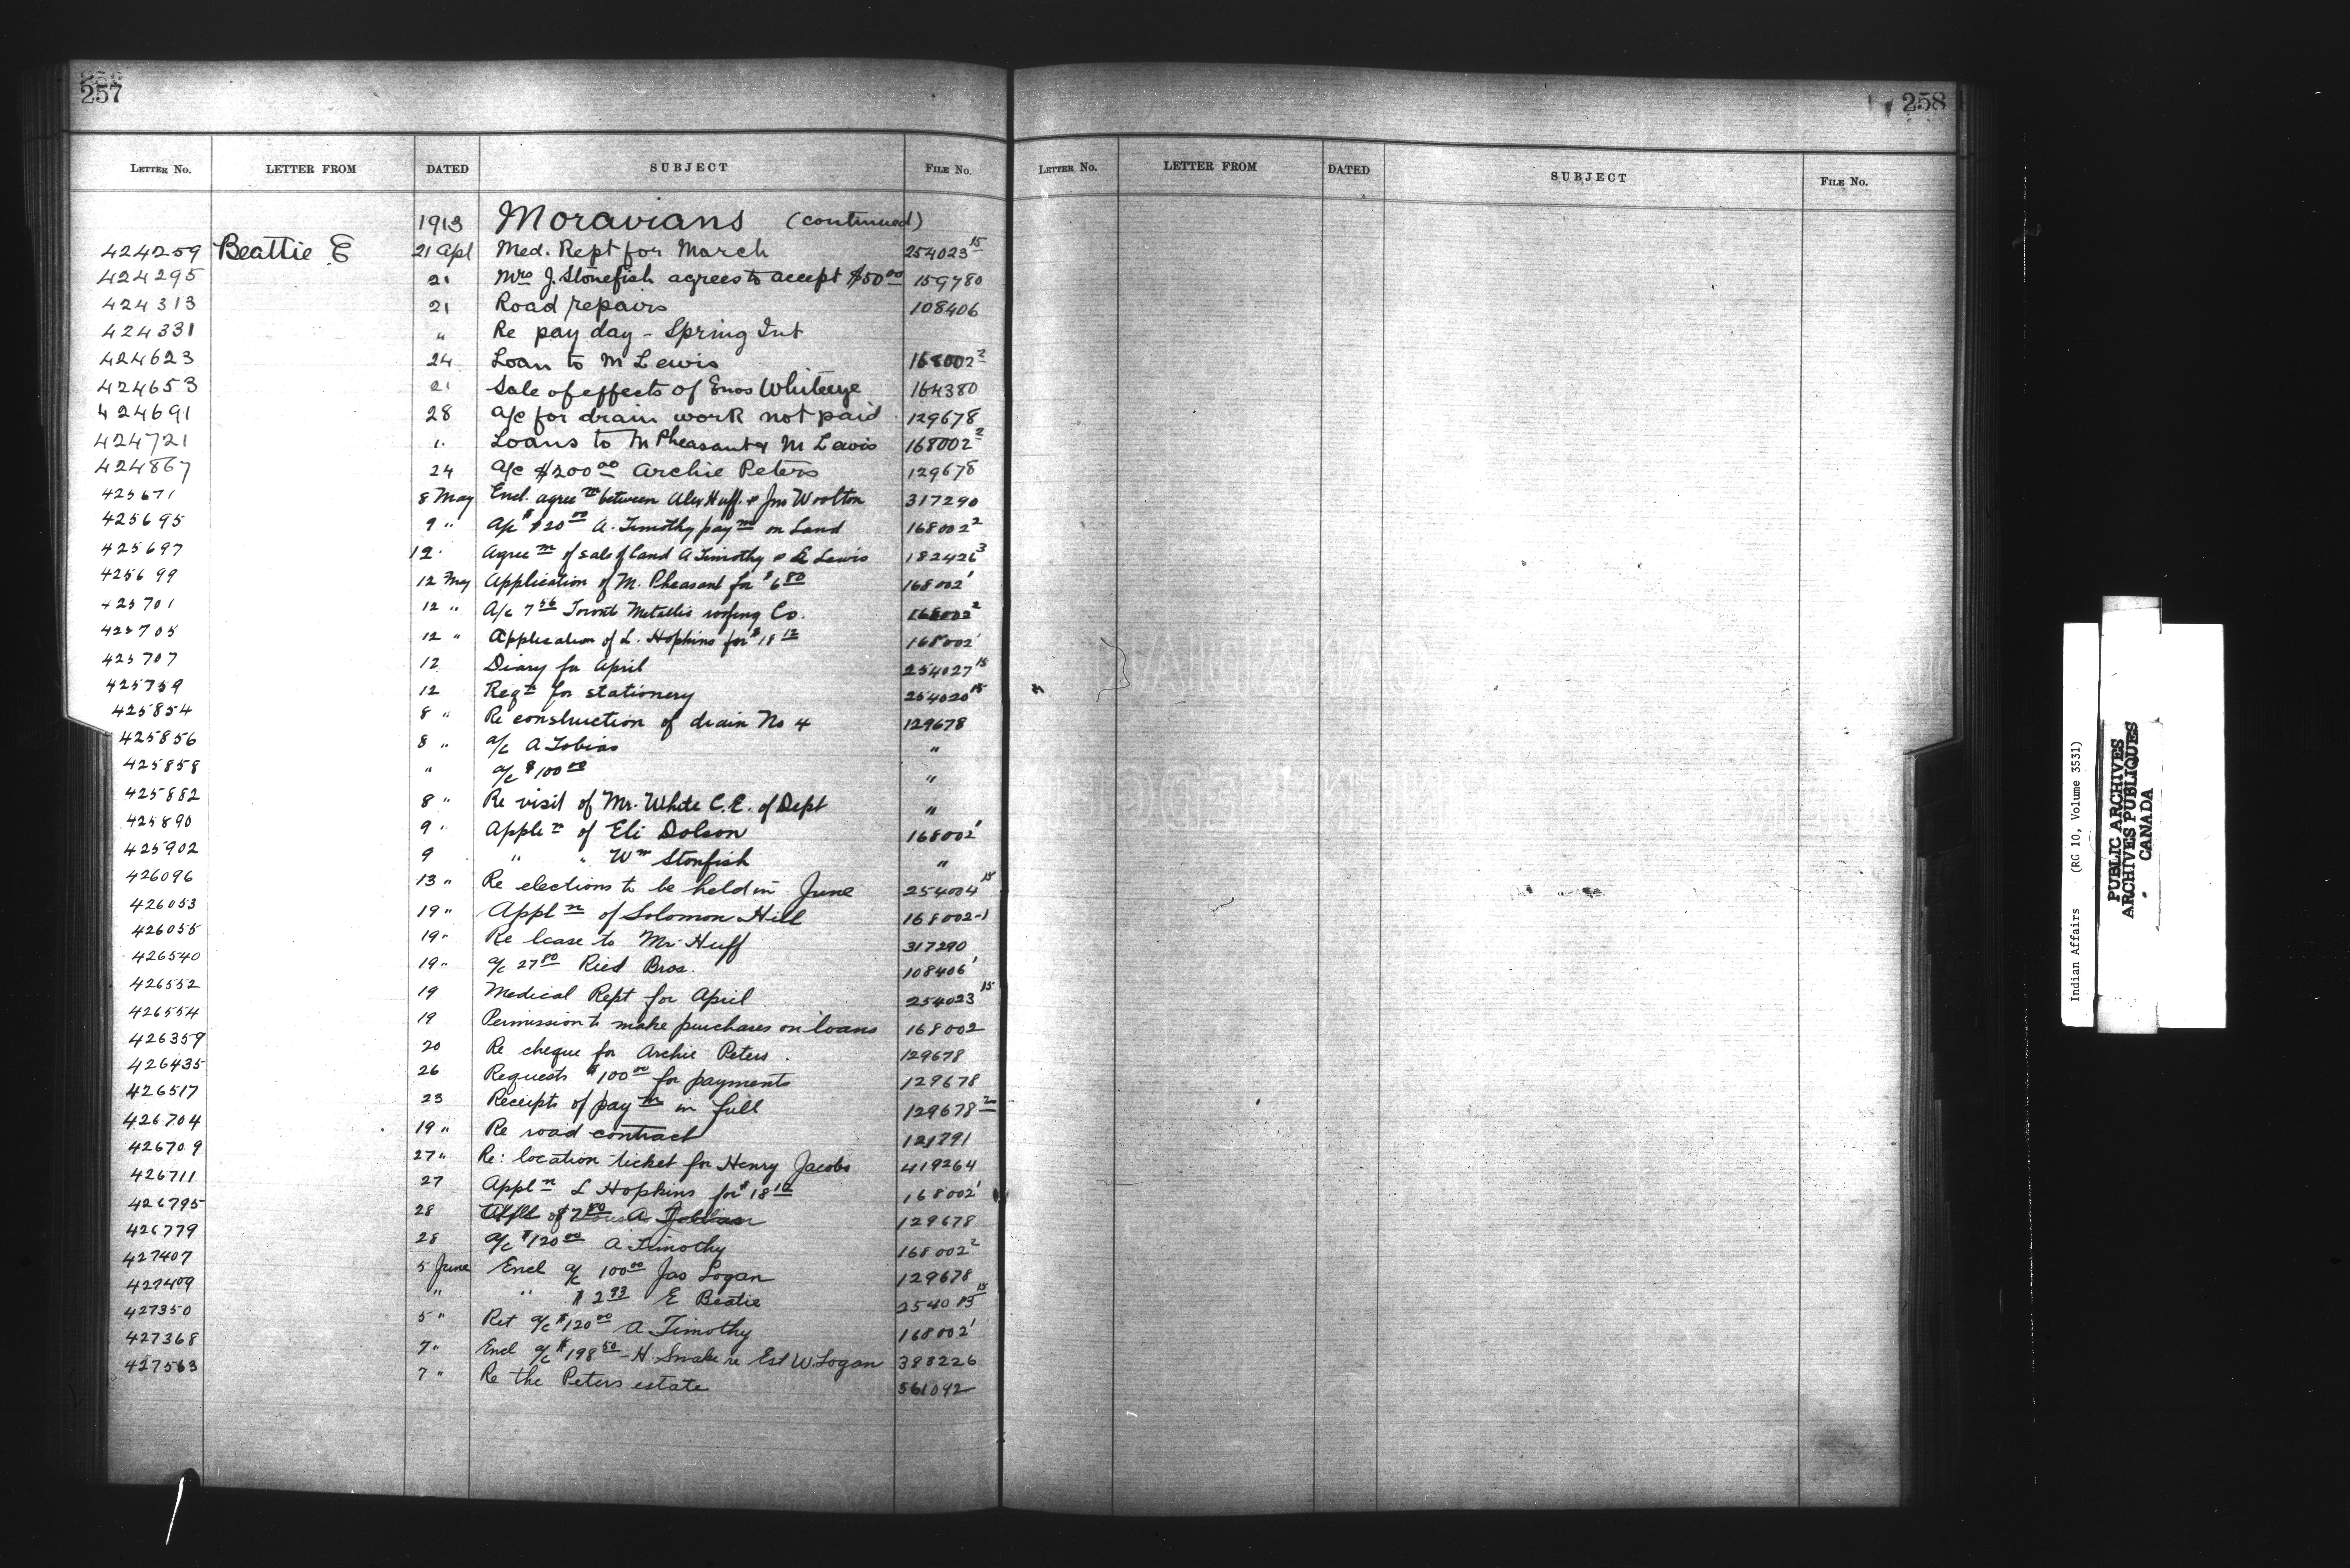 257
258
LETTER No. LETTER FROM DATED SUBJECT FILE No.
LETTER No. LETTER FROM DATED SUBJECT FILE No.
1913 Moravians (continued)
424259 Beattie E 21 Apl Med. Rept for March 254023 15
424295 21 Mrs J. Stonefish agrees to accept $50 00 159780
424313 21 Road repairs 108406
424331 " Re pay day - Spring Int
424623 24 Loan to M Lewis 168002 2
424653 21 Sale of effects of Enos Whiteeye 164380
424691 28 a/c for drain work not paid 129678
424721 " Loans to M Pheasant & M Lewis 168002 2
424867 24 a/c $200 00 Archie Peters 129678
425671 8 May Encl. agree m between Alex Huff & Jno Woolton 317290
425695 9 " A/c $20 00 A. Timothy pay m on Land 168002 2
425697 12 Agree m of sale of land A Timothy & E Lewis 182426 3
425699 12 May Application of M. Pheasant for $6 80 168002 1
425701 12 " A/c 7 56 Toronto Metallic roofing Co. 168002 2
425705 12 " Application of L. Hopkins for $18 12 168002 1
425707 12 Diary for April 254027 15
425759 12 Reqn for stationery 254020 15
425854 8 " Re construction of drain No 4 129678
425856 8 " a/c A Tobias "
425858 " a/c $100 00 "
425882 8 " Re visit of Mr. White C.E. of Dept "
425890 9 " Appli n of Eli Dolson 168002 1
425902 9 " " Wm Stonfish "
426096 13 " Re elections to be held in June 254004 15
426053 19 " Appl n of Solomon Hill 168002-1
426055 19 " Re lease to Mr Huff 317290
426540 19 " a/c 27 80 Ried Bros. 108406 1
426552 19 Medical Rept for April 254023 15
426554 19 Permission to make purchases on loans 168002
426359 20 Re cheque for Archie Peters. 129678
426435 26 Requests $100 00 for payments 129678
426517 23 Receipts of pay m in full 129678 2
426704 19 " Re road contract 121791
426709 27 " Re: location ticket for Henry Jacobs 419264
426711 27 Appl n L Hopkins for $18 12 168002 1
426795 28 of $7 00 A 129678
426779 28 a/c $120 00 A Timothy 168002 2
427407 5 June Encl a/c 100 00 Jas Logan 129678
427409 " " $2 93 E Beatie 254013 15
427350 5 " Ret a/c $120 00 A Timothy 168002 1
427368 7 " Encl a/c $198 50 - H. Snake re Est W. Logan 388226
427563 7 " Re the Peters estate 561092
Indian Affairs (RG 10, Volume 3531)
PUBLIC ARCHIVES
ARCHIVES PUBLIQUES
CANADA